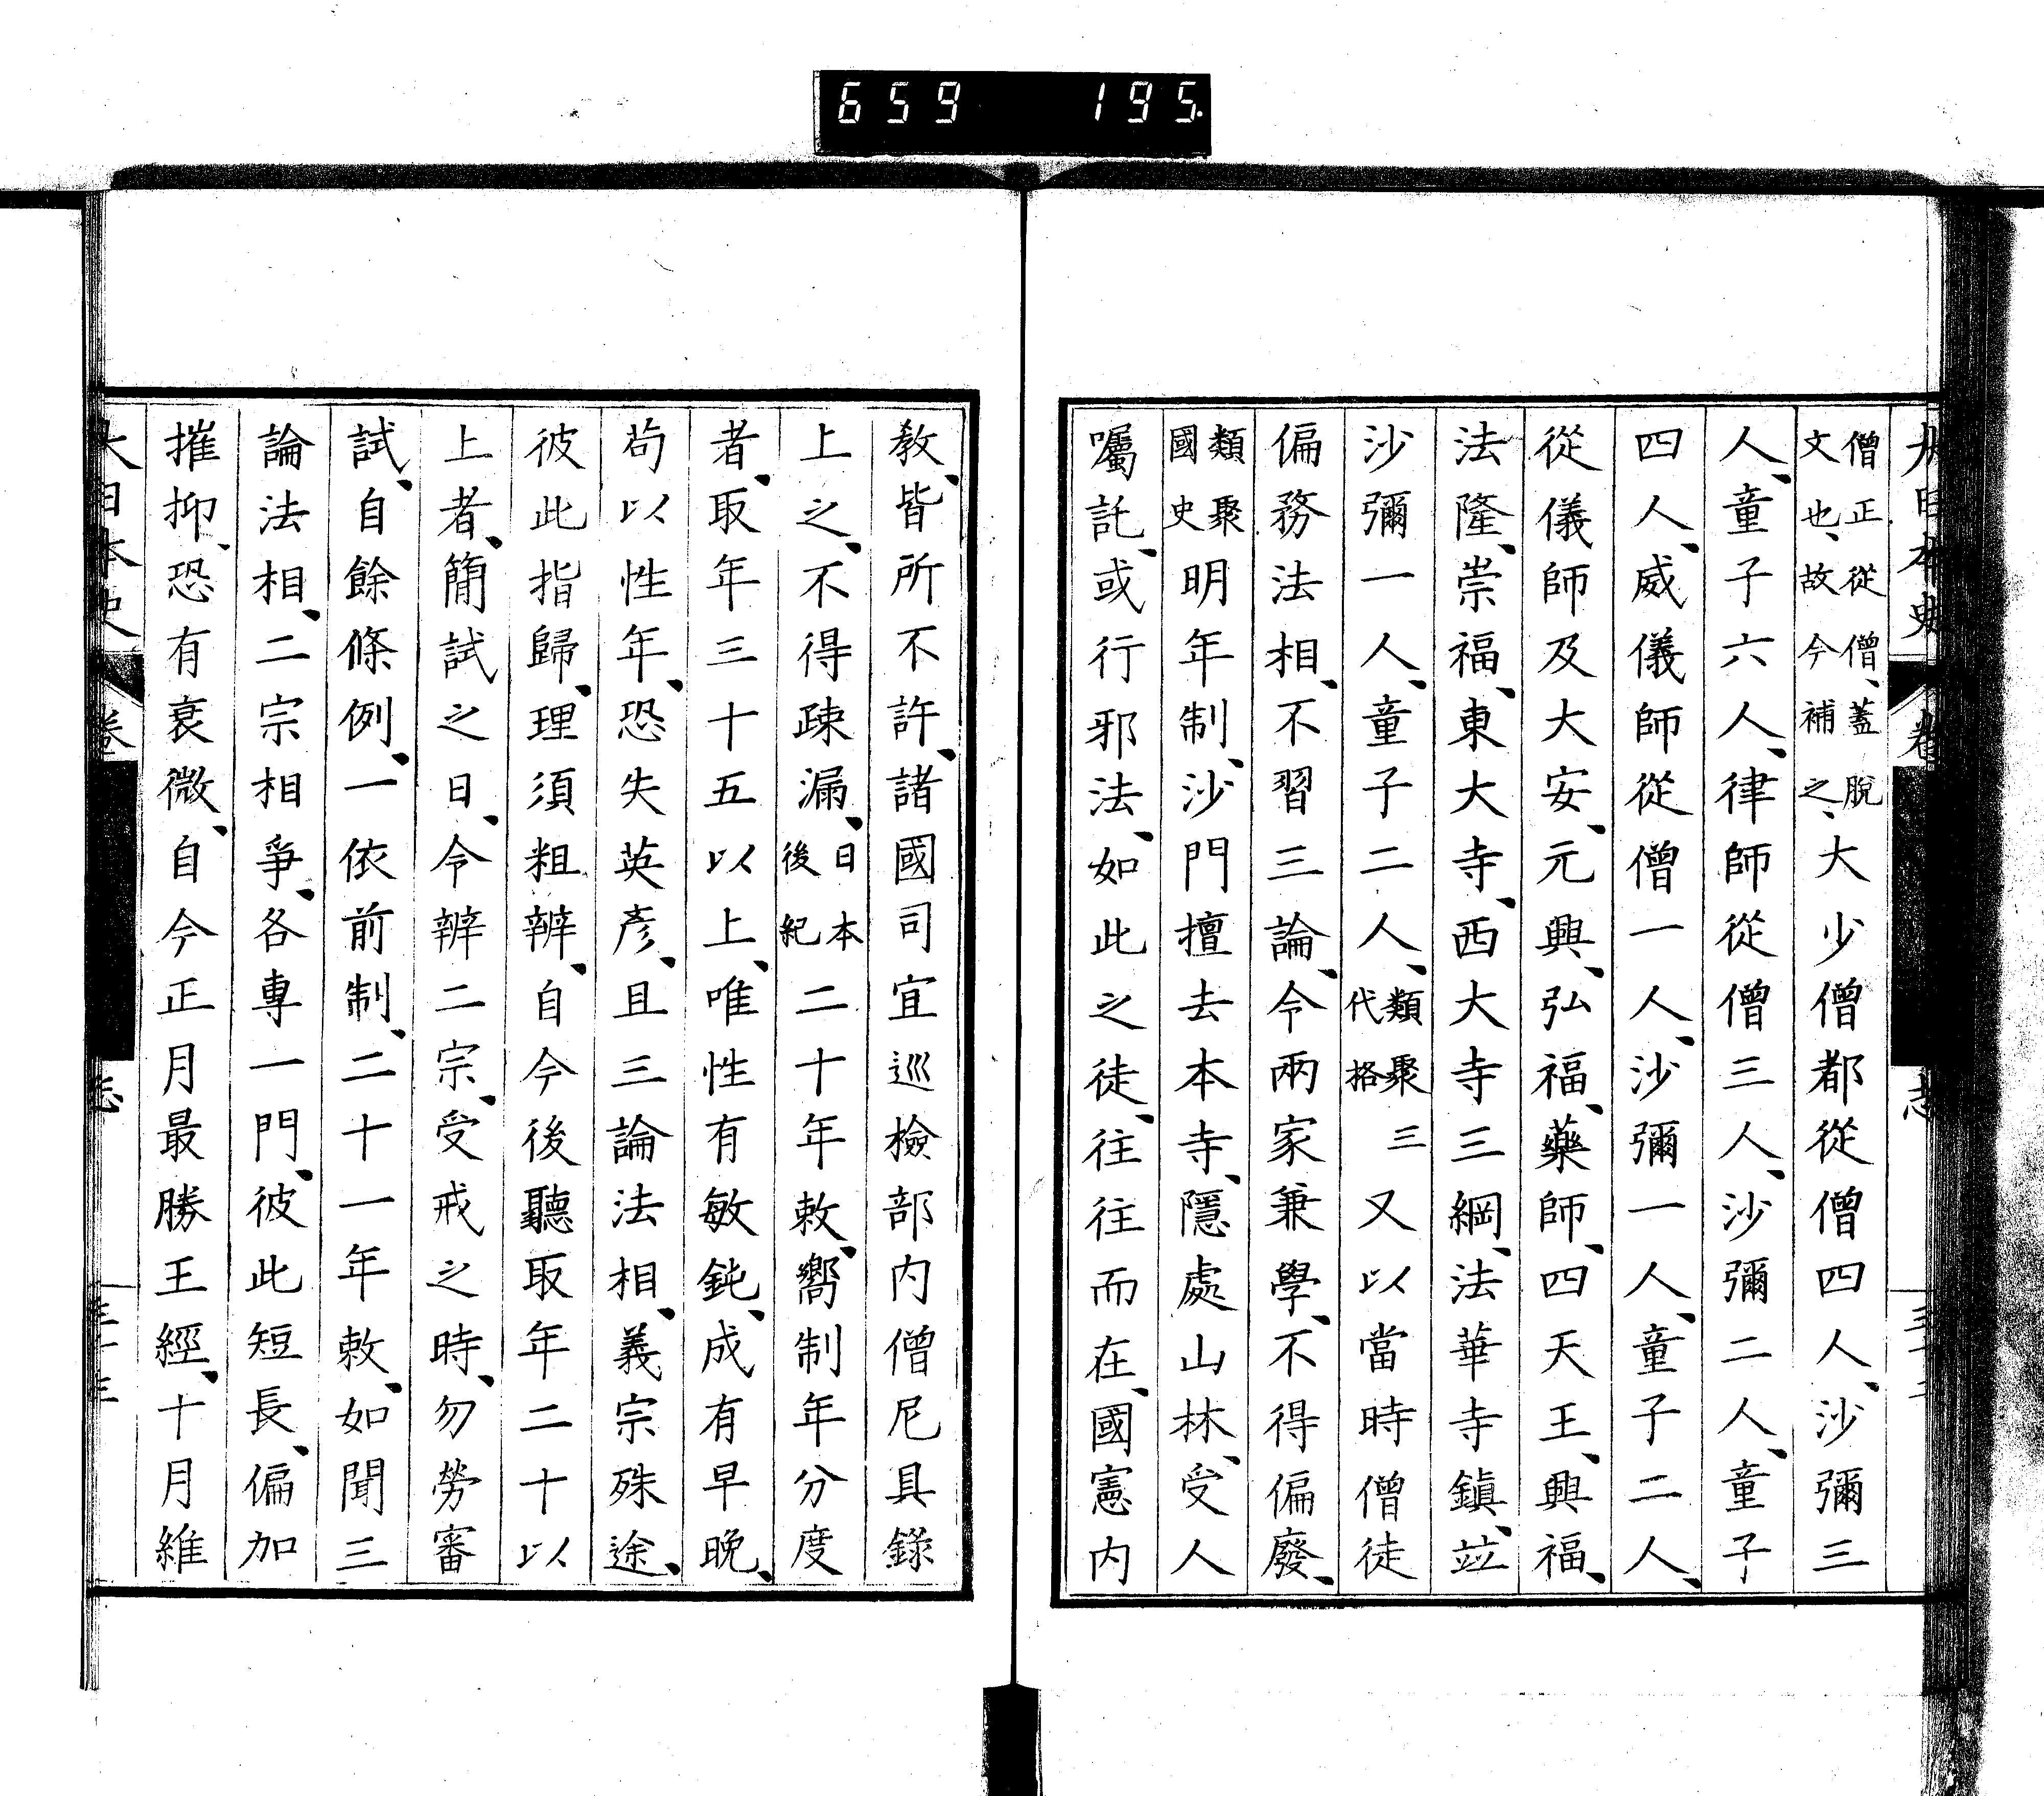 659 195
僧正從僧、蓋脫
文也、故今補之、大少僧都從僧四人、沙彌三
人、童子六人、律師從僧三人、沙彌二人、童子
四人、威儀師從僧一人、沙彌一人、童子二人、
從儀師及大安、元興、弘福、藥師、四天王、興福、
法隆、崇福、東大寺、西大寺三綱、法華寺鎮、竝
沙彌一人、童子二人、類聚三代格又以當時僧徒
偏務法相、不習三論、令兩家兼學、不得偏廢、
類聚國史明年制、沙門擅去本寺、隱處山林、受人
囑託、或行邪法、如此之徒、往往而在、國憲内
教、皆所不許、諸國司宜巡檢部内僧尼具錄
上之、不得疎漏、日本後紀二十年敕、嚮制年分度
者、取年三十五以上、唯性有敏鈍、成有早晚、
苟以性年、恐失英彥、且三論法相、義宗殊途、
彼此指歸、理須粗辨、自今後聽取年二十以
上者、簡試之日、令辨二宗、受戒之時、勿勞審
試、自餘條例、一依前制、二十一年敕、如聞三
論法相、二宗相爭、各專一門、彼此短長、偏加
摧抑、恐有衰微、自今正月最勝王經、十月維
大日本史 卷 志